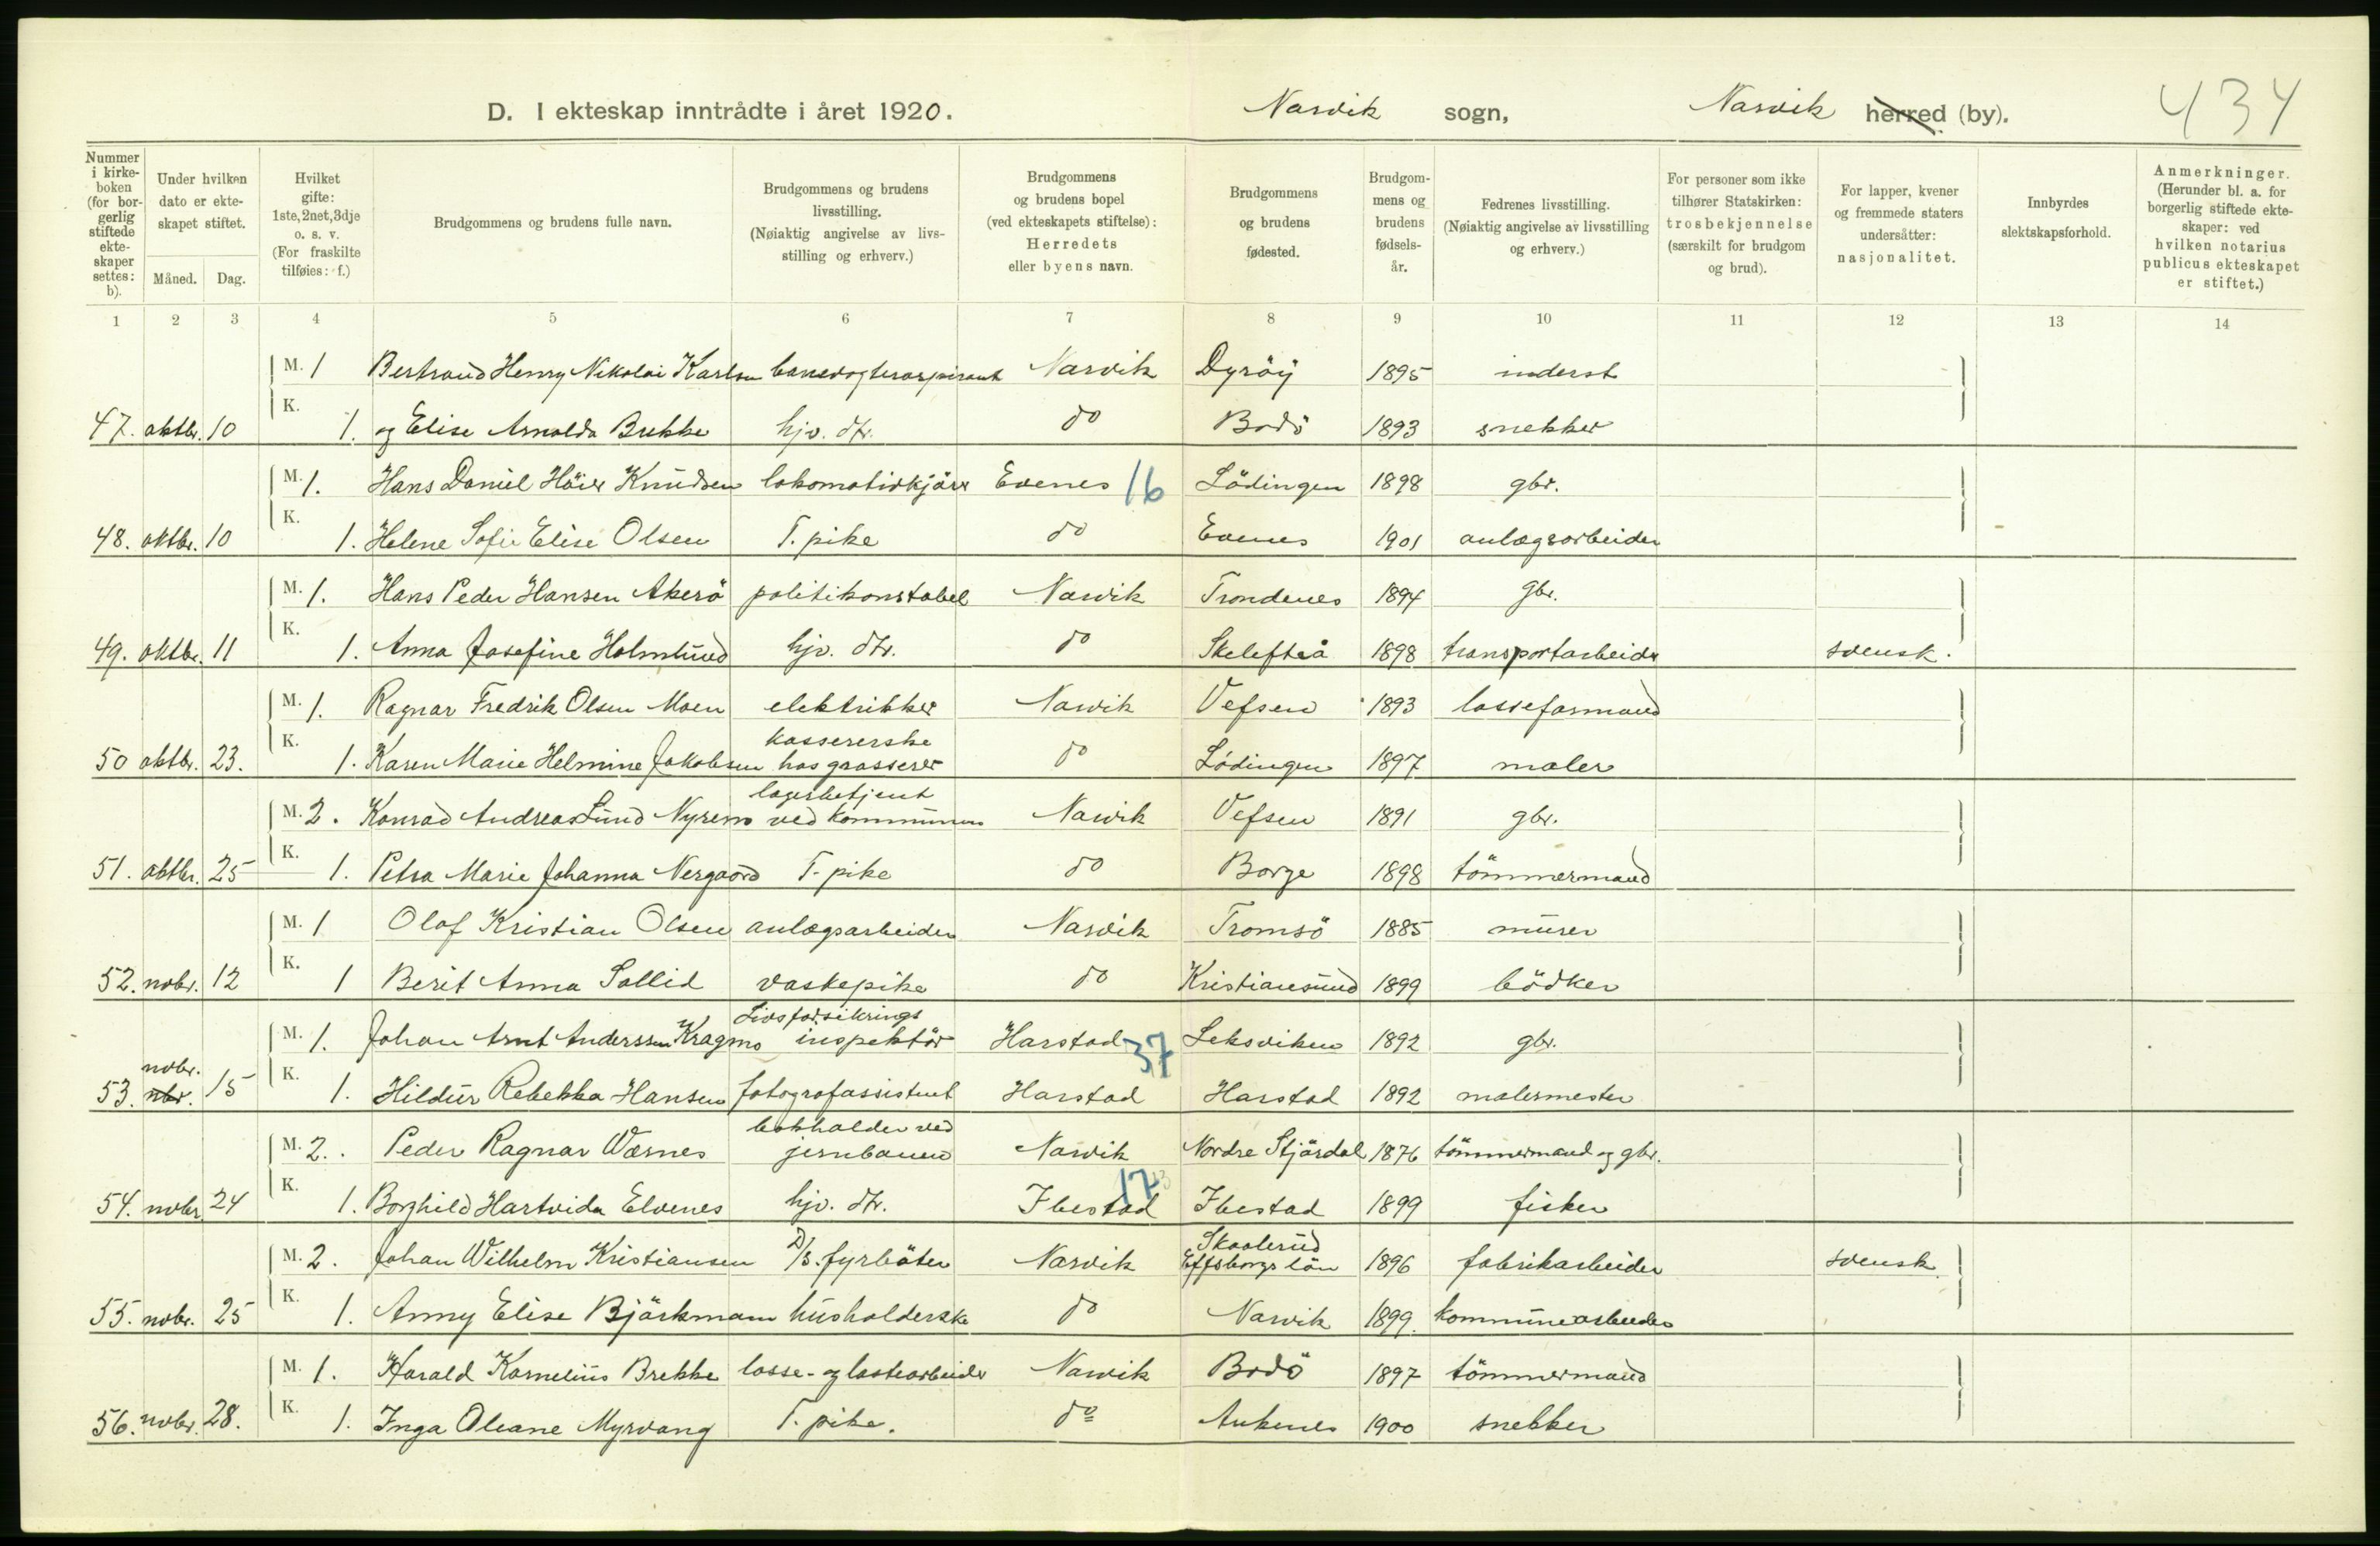 D. I ekteskap inntrådte i året 1920. Narvik sogn, Narvik herred (by). 434
Nummer i kirkeboken (for borgerlig stiftede ekteskaper settes: b). Under hvilken dato er ekteskapet stiftet. Måned. Dag. Hvilket gifte: 1ste, 2net, 3dje o. s. v. (For fraskilte tilføies: f.) Brudgommens og brudens fulle navn. Brudgommens og brudens livsstilling. (Nøiaktig angivelse av livsstilling og erhverv.) Brudgommens og brudens bopel (ved ekteskapets stiftelse): Herredets eller byens navn. Brudgommens og brudens fødested. Brudgommens og brudens fødselsår. Fedrenes livsstilling. (Nøiaktig angivelse av livsstilling og erhverv.) For personer som ikke tilhører Statskirken: trosbekjennelse (særskilt for brudgom og brud). For lapper, kvener og fremmede staters undersåtter: nasjonalitet. Innbyrdes slektskapsforhold. Anmerkninger. (Herunder bl. a. for borgerlig stiftede ekteskaper: ved hvilken notarius publicus ekteskapet er stiftet.)
1 2 3 4 5 6 7 8 9 10 11 12 13 14
M. 1 Bertrand Henry Nikolai Karlsen banevogteraspirant Narvik Dyröy 1895 inderst
47. oktbr. 10 K. 1. og Elise Arnolda Brekke hjv. dtr. do Bodö 1893 snekker
M. 1. Hans Daniel Höier Knudsen lokomotivkjörer Evenes 16 Lödingen 1898 gbr.
48. oktbr. 10 K. 1. Helene Sofie Elise Olsen T. pike do Evenes 1901 anlægsarbeider
M. 1. Hans Peder Hansen Akerö politikonstabel Narvik Trondenes 1894 gbr.
49. oktbr. 11 K. 1. Anna Josefine Holmlund hjv. dtr. do Skelefteå 1898 transportarbeider svensk.
M. 1. Ragnar Fredrik Olsen Moen elektrikker Narvik Vefsen 1893 losseformand
50 oktbr. 23. K. 1. Karen Marie Helmine Jakobsen kassererske hos grosserer do Lödingen 1897 maler
M. 2. Konrad Andreas Lund Nyremo lagerbetjent ved kommunen Narvik Vefsen 1891 gbr.
51. oktbr. 25 K. 1. Petra Marie Johanna Nergaard T. pike do Borge 1898 tömmermand
M. 1 Olaf Kristian Olsen anlægsarbeider Narvik Tromsö 1885 murer
52. novbr. 12 K. 1 Berit Anna Sollid vaskepike do Kristiansund 1899 bödker
M. 1. Johan Arnt Anderssen Kragmo Livsforsikrings inspektör Harstad 37 Leksviken 1892 gbr.
53. novbr. 15 K. 1. Hildur Rebekka Hansen fotografassistent Harstad Harstad 1892 malermester
M. 2. Peder Ragnar Wærnes bokholder ved jernbanen Narvik Nordre Stjördal 1876 tömmermand og gbr.
54. novbr 24 K. 1. Borghild Hartvida Elvenes hjv. dtr. Ibestad 17 Ibestad 1899 fisker
M. 2. Johan Wilhelm Kristiansen D/S. fyrböter Narvik Skaalerud Elfsborgs län 1896 fabrikarbeider svensk
55. novbr. 25 K. 1. Anny Elise Björkmann husholderske do Narvik 1899. kommunearbeider
M. 1. Harald Kornelius Brekke losse- og lastearbeider Narvik Bodö 1897 tömmermand
56. novbr. 28. K. 1. Inga Oleane Myrvang T. pike. do Ankenes 1900 snekker